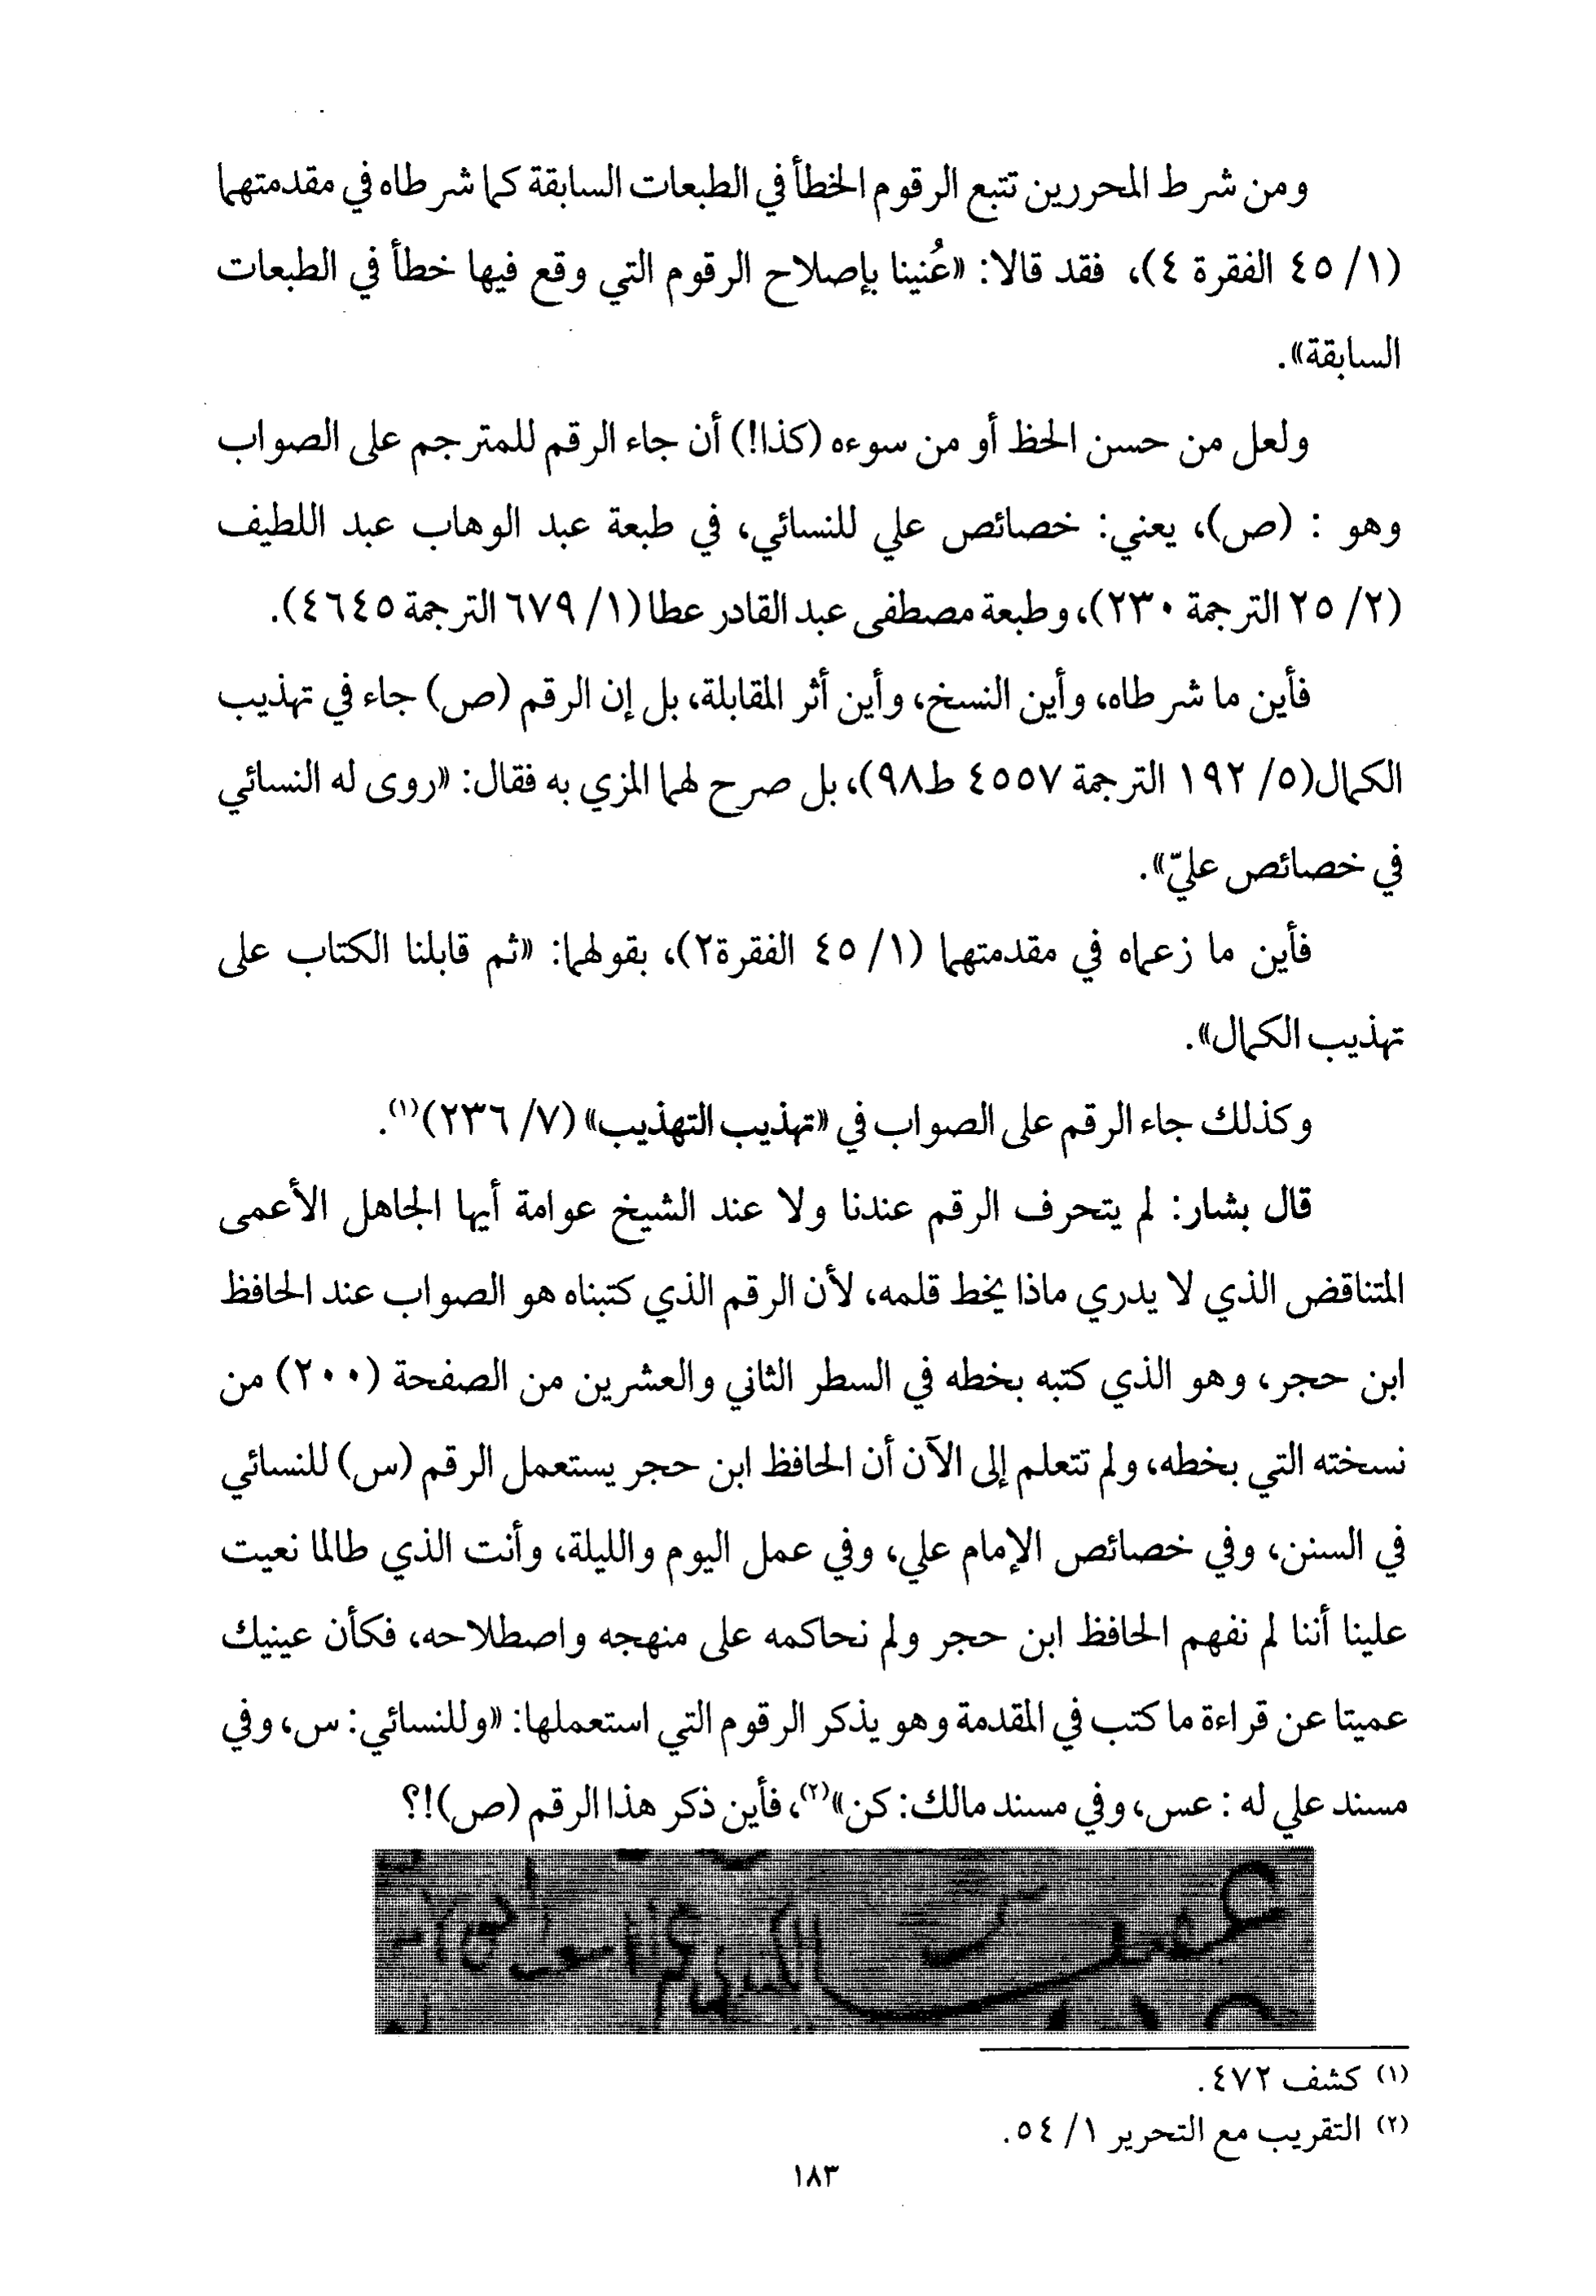 ومن شرط المحررين تتبع الرقوم الخطأ في الطبعات السابقة كما شرطاه في مقدمتهما
(١/ ٤٥ الفقرة ٤)، فقد قالا: «عُنينا بإصلاح الرقوم التي وقع فيها خطأ في الطبعات
السابقة».
ولعل من حسن الحظ أو من سوءه (كذا!) أن جاء الرقم للمترجم على الصواب
وهو : (ص)، يعني: خصائص علي للنسائي، في طبعة عبد الوهاب عبد اللطيف
(٢/ ٢٥ الترجمة ٢٣٠)، وطبعة مصطفى عبد القادر عطا (١/ ٦٧٩ الترجمة ٤٦٤٥).
فأين ما شرطاه، وأين النسخ، وأين أثر المقابلة، بل إن الرقم (ص) جاء في تهذيب
الكمال(٥/ ١٩٢ الترجمة ٤٥٥٧ ط٩٨)، بل صرح لهما المزي به فقال: «روى له النسائي
في خصائص عليّ».
فأين ما زعماه في مقدمتهما (١/ ٤٥ الفقرة٢)، بقولهما: «ثم قابلنا الكتاب على
تهذيب الكمال».
وكذلك جاء الرقم على الصواب في «تهذيب التهذيب» (٧/ ٢٣٦)(١).
قال بشار: لم يتحرف الرقم عندنا ولا عند الشيخ عوامة أيها الجاهل الأعمى
المتناقض الذي لا يدري ماذا يخط قلمه، لأن الرقم الذي كتبناه هو الصواب عند الحافظ
ابن حجر، وهو الذي كتبه بخطه في السطر الثاني والعشرين من الصفحة (٢٠٠) من
نسخته التي بخطه، ولم تتعلم إلى الآن أن الحافظ ابن حجر يستعمل الرقم (س) للنسائي
في السنن، وفي خصائص الإمام علي، وفي عمل اليوم والليلة، وأنت الذي طالما نعيت
علينا أننا لم نفهم الحافظ ابن حجر ولم نحاكمه على منهجه واصطلاحه، فكأن عينيك
عميتا عن قراءة ما كتب في المقدمة وهو يذكر الرقوم التي استعملها: «وللنسائي: س، وفي
مسند علي له : عس، وفي مسند مالك: كن»(٢)، فأين ذكر هذا الرقم (ص)!؟
(١) كشف ٤٧٢.
(٢) التقريب مع التحرير ١/ ٥٤.
١٨٣